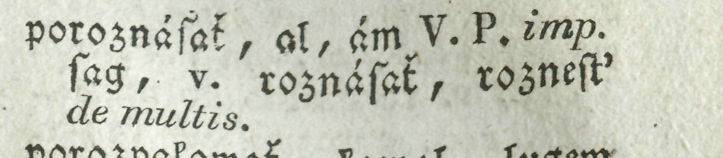 poroznáſať, al, ám V. P. imp.
ſag, v. roznáſať, rozneſť
de multis.